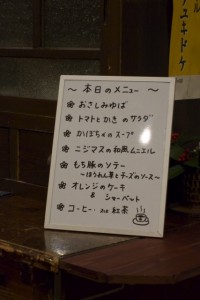 〜 本日のメニュー 〜
おさしみゆば
トマトとかきのサラダ
かぼちゃのスープ
ニジマスの和風ムニエル
もち豚のソテー
〜ほうれん草とチーズのソース〜
オレンジのケーキ
& シャーベット
コーヒー or 紅茶
ユキドケ